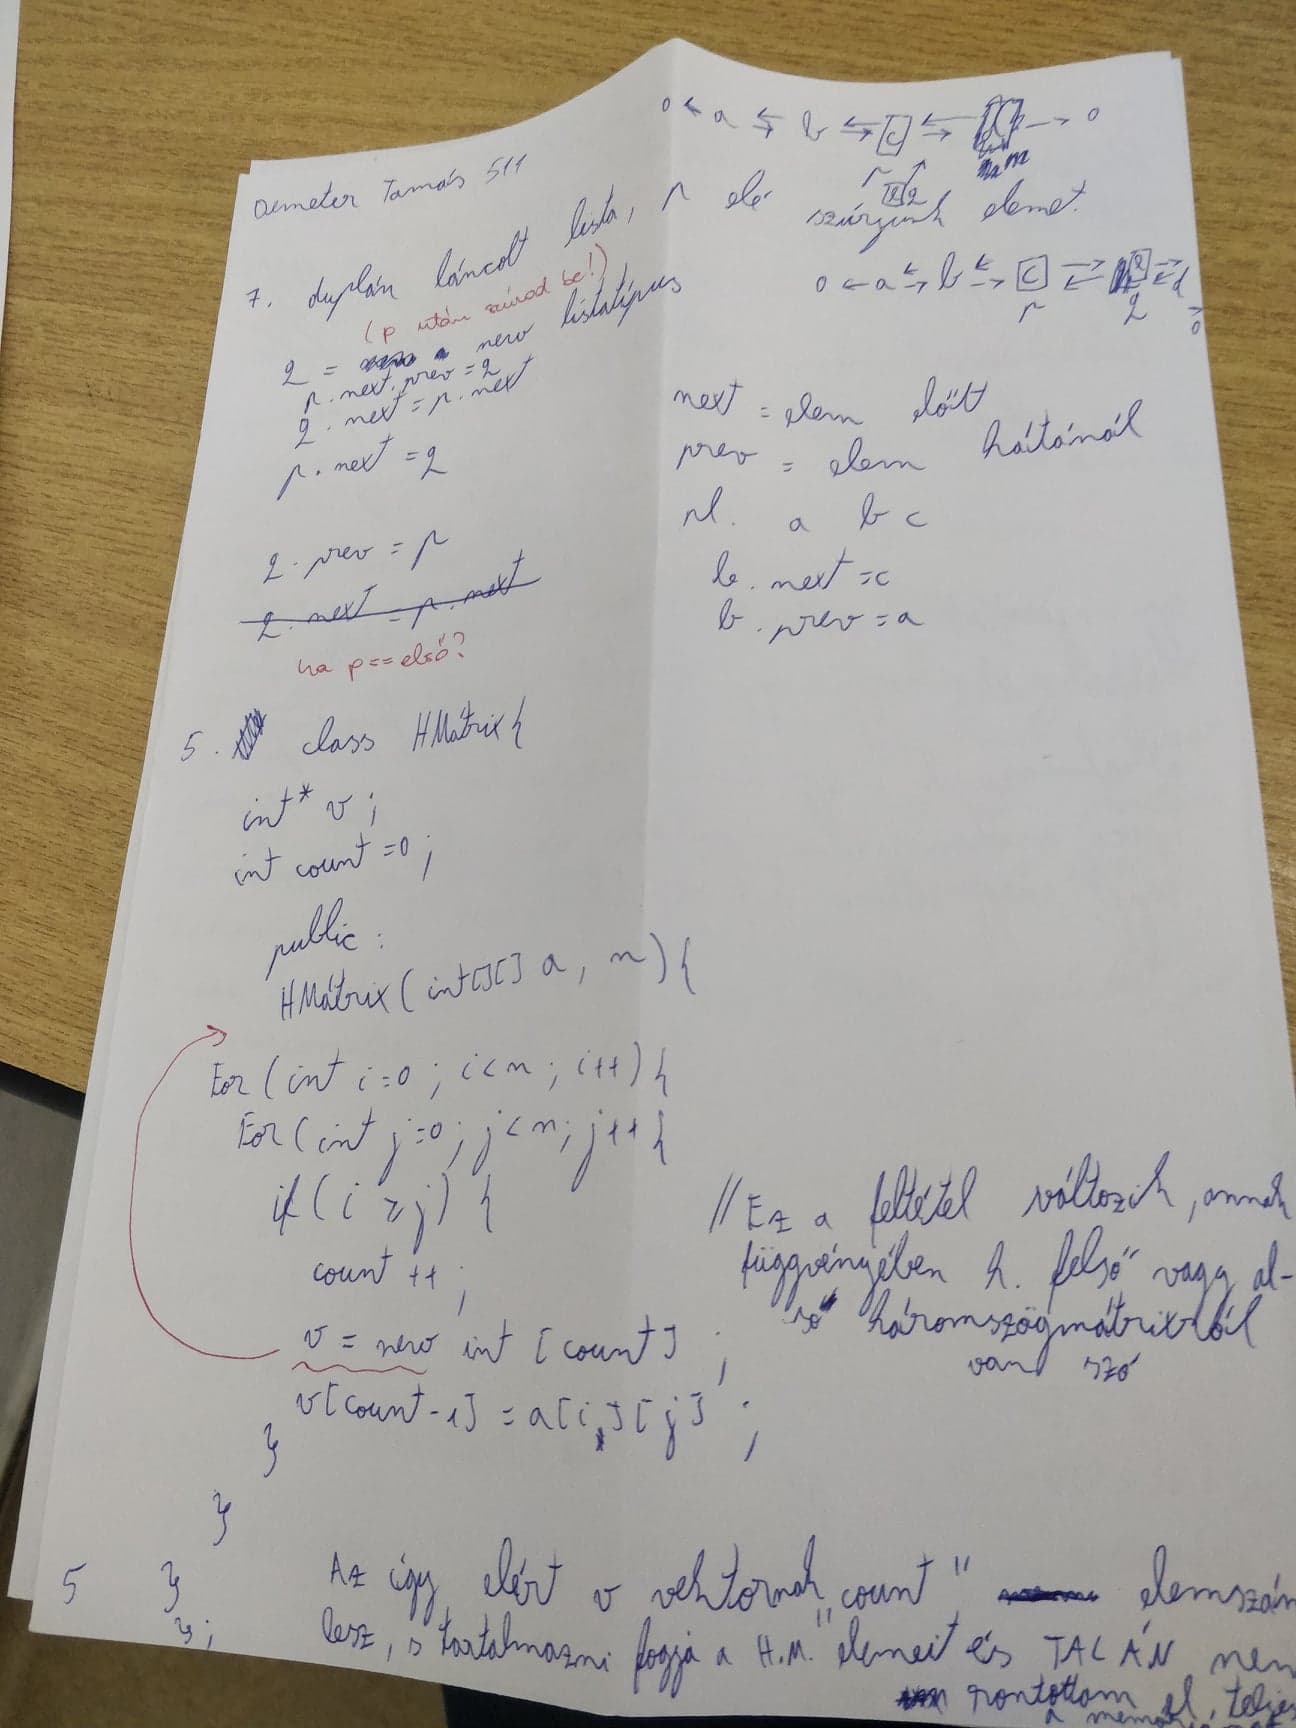 Demeter Tamás 511
0 ← a ⇆ b ⇆ c ⇆ → 0
7. duplán láncolt lista, p elé szúrjunk elemet.
(p után szúrod be!)
q = new listatípus
p.next.prev = q
q.next = p.next
p.next = q
q.prev = p
q.next = p.next
ha p==első?
0 ← a ⇆ b ⇆ c ⇄ q ⇄ d
p q → 0
next = elem előtt
prev = elem hátánál
pl. a b c
b.next = c
b.prev = a
5. class HMátrix{
int* v;
int count=0;
public:
HMátrix(int[][] a, n){
For(int i=0; i<n; i++){
For(int j=0; j<n; j++{
if(i ≥ j) {
count ++;
v = new int [count];
v[count-1] = a[i][j];
}
}
5 }
};
//Ez a feltétel változik, annak
függvényében h. felső vagy al-
só háromszögmátrixról
van szó
Az így elért v vektornak "count" elemszám
lesz, s tartalmazni fogja a H.M. elemeit és TALÁN nem
rontottam el teljes
a